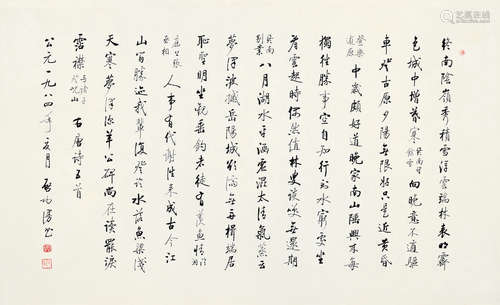 終南陰嶺秀積雪浮雲端林表明霽
色城中增暮寒終南望餘雪向晚意不適驅
車登古原夕陽無限好只是近黃昏
登樂遊原中歲頗好道晚家南山陲興來每
獨往勝事空自知行到水窮處坐
看雲起時偶然值林叟談笑無還期
終南別業八月湖水平涵虛混太清氣蒸雲
夢澤波撼岳陽城欲濟無舟楫端居
恥聖明坐觀垂釣者徒有羨魚情
庭上張丞相人事有代謝往來成古今江
山留勝跡我輩復登臨水落魚梁淺
天寒夢澤深羊公碑尚在讀罷淚
霑襟與諸子登峴山右唐詩五首
公元一九八四年夏月啟功書
艺狐在线